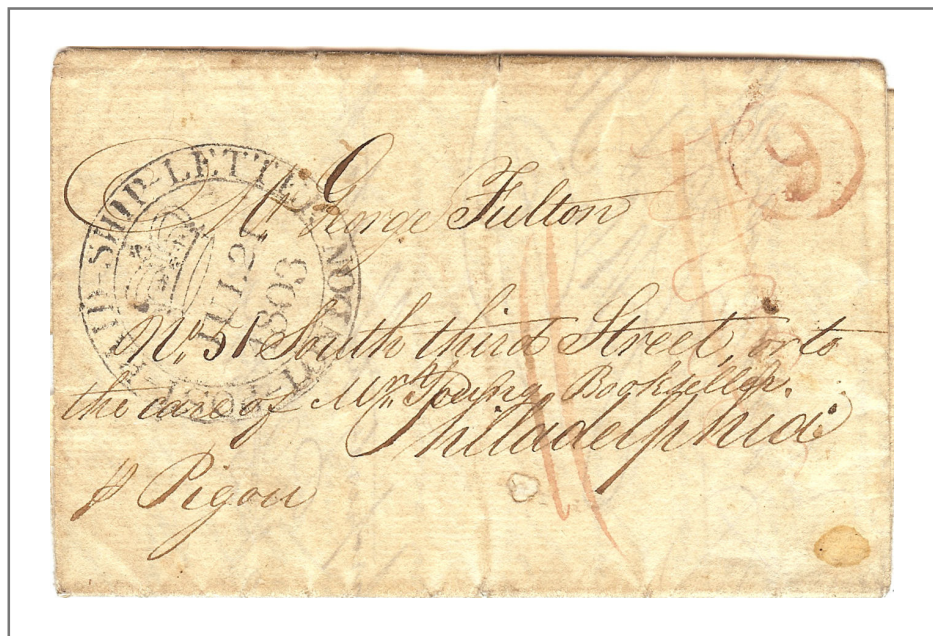 SHIP-LETTER
LONDON
1803
Mr. George Fulton
No. 51 South third Street, or to
the care of Mr. Young Bookseller.
Philadelphia
p Pigou